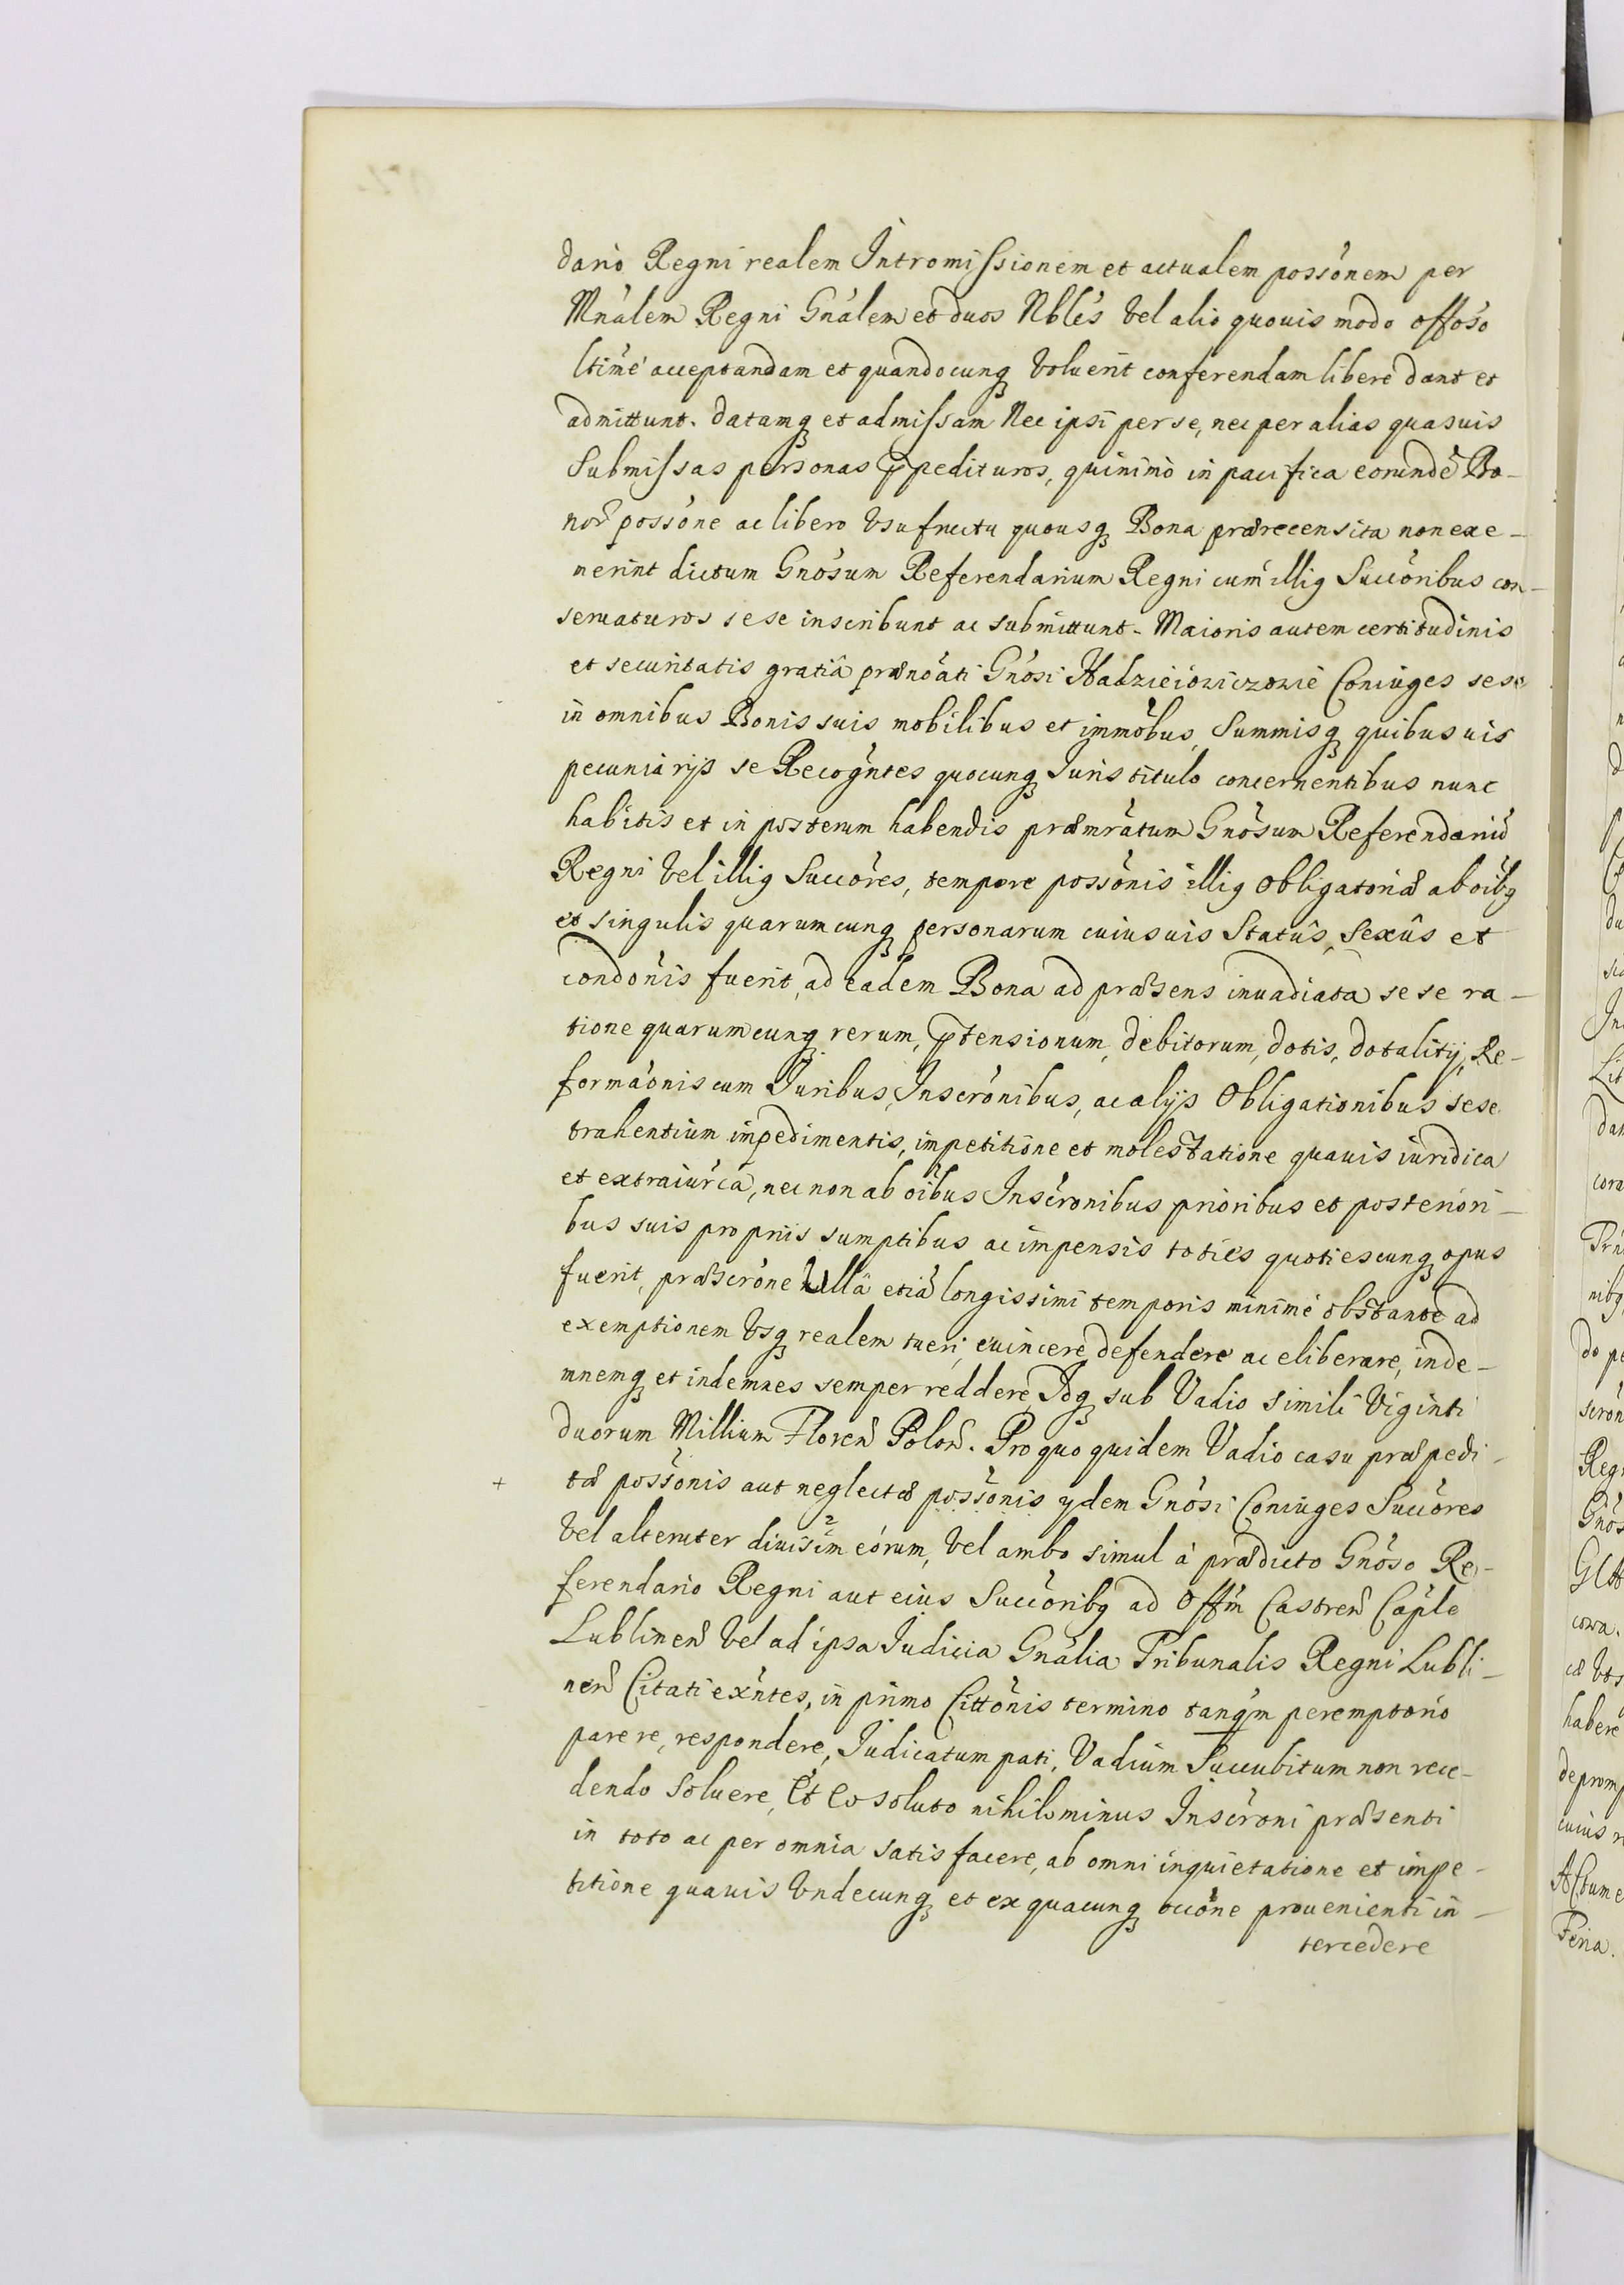 dario Regni realem Intromissionem et actualem possônem per
Mnâlem Regni Gnâlem et duos Nblês vel alio quouis modo offôso
ltimê acceptandam et quandocunq voluerit conferendam libere dant et
admittunt. Datamq et admissam Nec ipsi per se, nec per alias quasuis
Submissas personas ppedituros, quinimò in pacifica eorundẽ Bo-
nor̃ possône ac libero vsufructu quousq Bona præcensita non exe-
merint dictum Gnôsum Referendarium Regni cum illig Succôribus con-
seruaturos sese inscribunt ac submittunt. Maioris autem certitudinis
et securitatis gratiâ prænôati Gnôsi Hadzieiowiczowie Coniuges sese
in omnibus Bonis suis mobilibus et immôbus, Summisq quibusuis
pecuniarijs se Recogntes quocunq Iuris titulo concernentibus nunc
habitis et in posterum habendis præmrâtum Gnôsum Referendariũ
Regni vel illig Succôres, tempore possônis illig obligatoriæ ab oîbq
et singulis quarumcunq personarum cuiusuis Statûs, Sexûs et
condônis fuerit, ad eadem Bona ad præsens inuadiata sese ra-
tione quarumcunq rerum, ptensionum, debitorum, dotis, dotalitij, Re-
formaônis cum Iuribus, Inscrônibus, ac alijs Obligationibus sese
trahentium impedimentis, impetitione et molestatione quauis iuridica
et extraiurca, nec non ab oîbus Inscrônibus prioribus et posteriori-
bus suis proprijs sumptibus ac impensis toties quotiescunq opus
fuerit, præscrône Ullâ etiã longissimi temporis minimè obstante ad
exemptionem vsq realem tueri, euincere, defendere ac eliberare, inde-
mnemq et indemnes semper reddere, Idq sub Vadio simili Viginti
duorum Millium Floreñ Poloñ. Pro quo quidem Vadio casu præpedi-
+ tæ possônis aut neglectæ possônis ydem Gnôsi Coniuges Succôres
vel alteruter diuisim eôrum, vel ambo simul à prædicto Gnôso Re-
ferendario Regni aut eius Succôribq ad Offm Castreñ Cãple
Lublineñ vel ad ipsa Iudicia Gnâlia Tribunalis Regni Lubli-
neñ Citati exntes, in primo Cittônis termino tanqm peremptorio
parere, respondere, Iudicatum pati, Vadium Succubitum non rece-
dendo soluere, Et Eo soluto nihilominus Inscrôni præsenti
in toto ac per omnia satisfacere, ab omni inquietatione et impe-
titione quauis vndecunq et ex quacunq occône prouenienti in-
tercedere